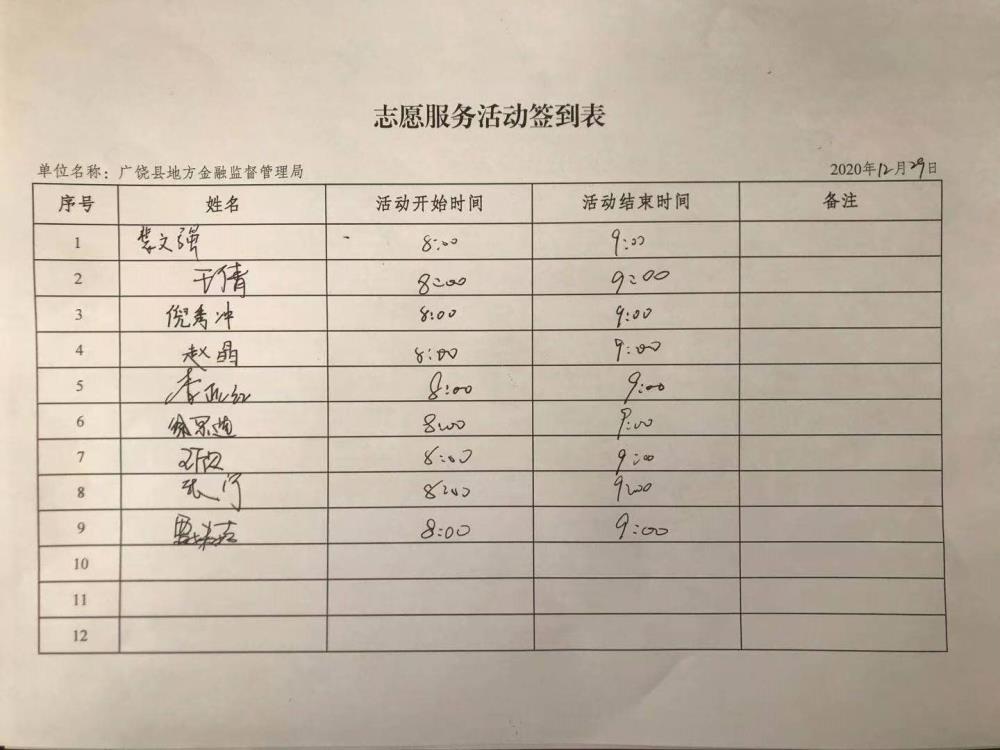 志愿服务活动签到表
单位名称：广饶县地方金融监督管理局 2020年12月29日
序号 姓名 活动开始时间 活动结束时间 备注
1 文强 8:00 9:00
2 王倩 8:00 9:00
3 倪秀冲 8:00 9:00
4 赵晶 8:00 9:00
5 李亚红 8:00 9:00
6 8:00 9:00
7 8:00 9:00
8 8:00 9:00
9 8:00 9:00
10
11
12